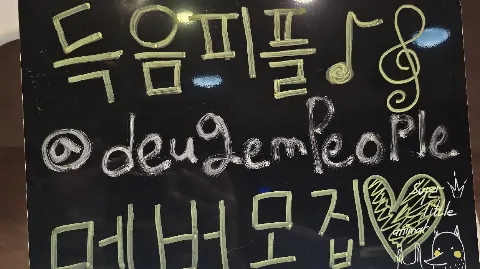 득음피플
@deugempeople
멤버모집
Super
little
animal